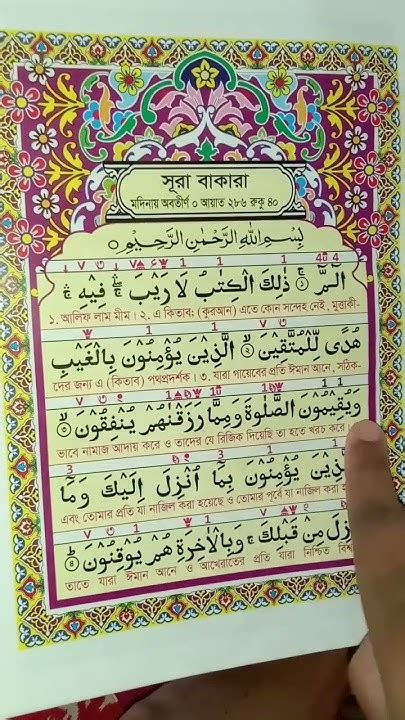 সূরা বাকারা
মদিনায় অবতীর্ণ ০ আয়াত ২৮৬ রুকু ৪০
بِسْمِ اللهِ الرَّحْمٰنِ الرَّحِيْمِ
الٓمّٓ ۚ ذٰلِكَ الْكِتٰبُ لَا رَيْبَ ۛ فِيْهِ ۛ
১. আলিফ লাম মীম। ২. এ কিতাব; (কুরআন) এতে কোন সন্দেহ নেই, মুত্তাকী-
هُدًى لِّلْمُتَّقِيْنَ الَّذِيْنَ يُؤْمِنُوْنَ بِالْغَيْبِ
দের জন্য এ (কিতাব) পথপ্রদর্শক। ৩. যারা গায়েবের প্রতি ঈমান আনে, সঠিক-
وَيُقِيْمُوْنَ الصَّلٰوةَ وَمِمَّا رَزَقْنٰهُمْ يُنْفِقُوْنَ
ভাবে নামাজ আদায় করে ও তাদের যে রিজিক দিয়েছি তা হতে খরচ করে।
الَّذِيْنَ يُؤْمِنُوْنَ بِمَآ اُنْزِلَ اِلَيْكَ وَمَآ
এবং তোমার প্রতি যা নাজিল করা হয়েছে ও তোমার পূর্বে যা নাজিল করা
مِنْ قَبْلِكَ ۚ وَبِالْاٰخِرَةِ هُمْ يُوْقِنُوْنَ
তাতে যারা ঈমান আনে ও আখেরাতের প্রতি যারা নিশ্চিত